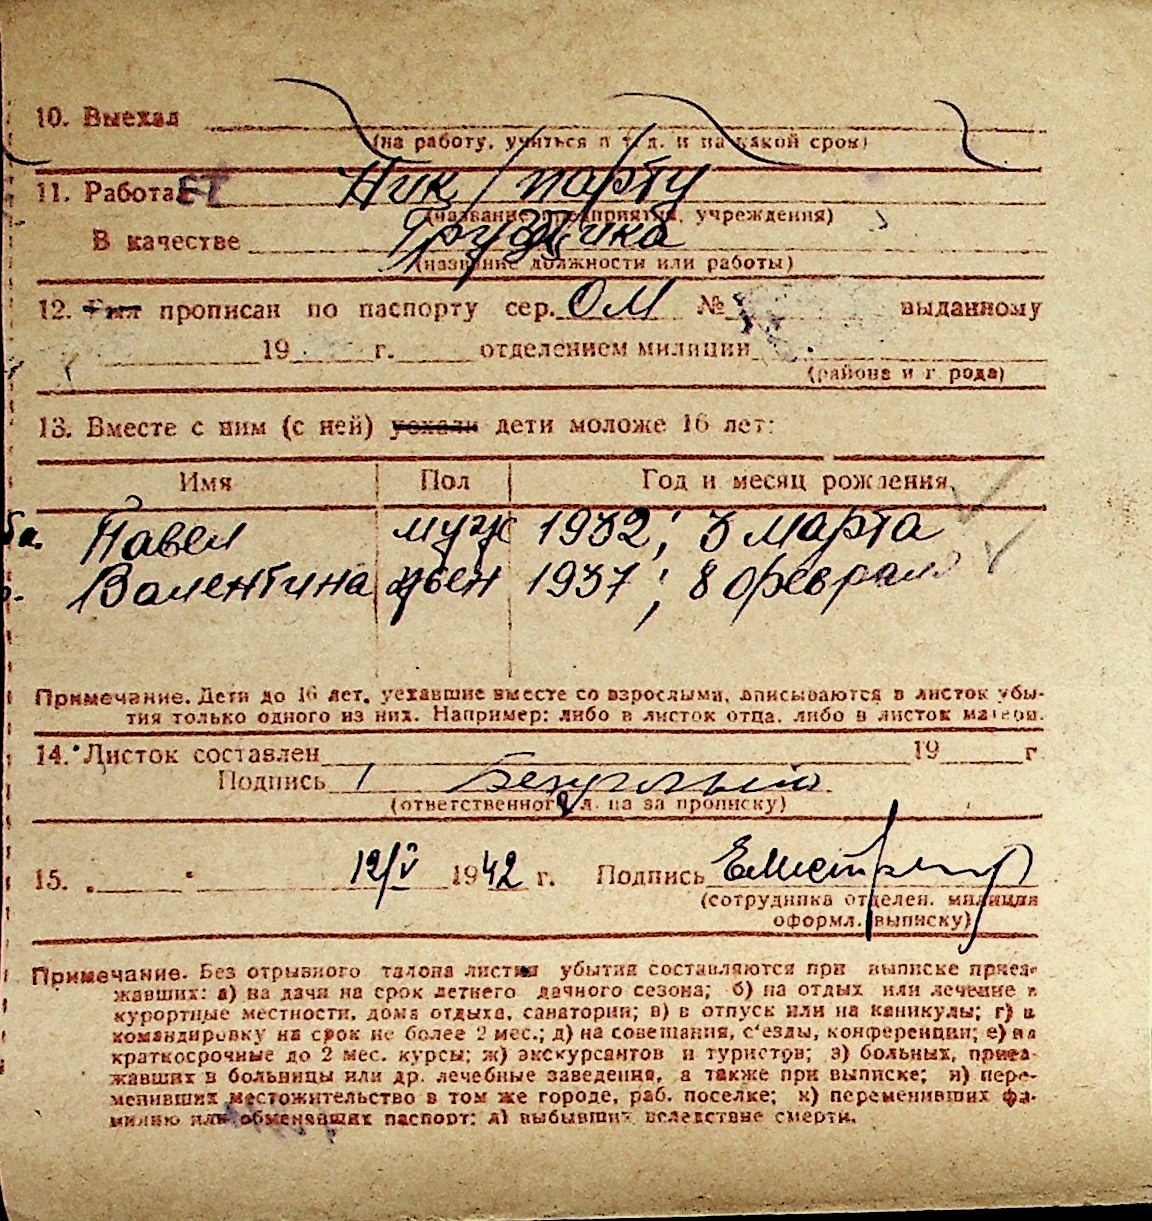 10. Выехал
(на работу, учиться и т. д. и на какой срок)
11. Работает Ник/порту
(название предприятия, учреждения)
В качестве Грузчика
(название должности или работы)
12. Был прописан по паспорту сер. ОМ № выданному
19 г. отделением милиции
(района и города)
13. Вместе с ним (с ней) уехали дети моложе 16 лет:
Имя Пол Год и месяц рождения
Павел муж 1932; 3 марта
Валентина жен 1937; 8 февраля
Примечание. Дети до 16 лет, уехавшие вместе со взрослыми, вписываются в листок убы-
тия только одного из них. Например: либо в листок отца, либо в листок матери.
14. Листок составлен 19 г
Подпись
(ответственного л. ца за прописку)
15. 12/V 1942 г. Подпись
(сотрудника отделен. милиции
оформл. выписку)
Примечание. Без отрывного талона листки убытия составляются при выписке приез-
жавших: а) на дачи на срок летнего дачного сезона; б) на отдых или лечение в
курортные местности, дома отдыха, санатории; в) в отпуск или на каникулы; г) в
командировку на срок не более 2 мес.; д) на совещания, с'езды, конференции; е) на
краткосрочные до 2 мес. курсы; ж) экскурсантов и туристов; з) больных, приез-
жавших в больницы или др. лечебные заведения, а также при выписке; и) пере-
менивших местожительство в том же городе, раб. поселке; к) переменивших фа-
милию или обменявших паспорт; л) выбывших вследствие смерти.